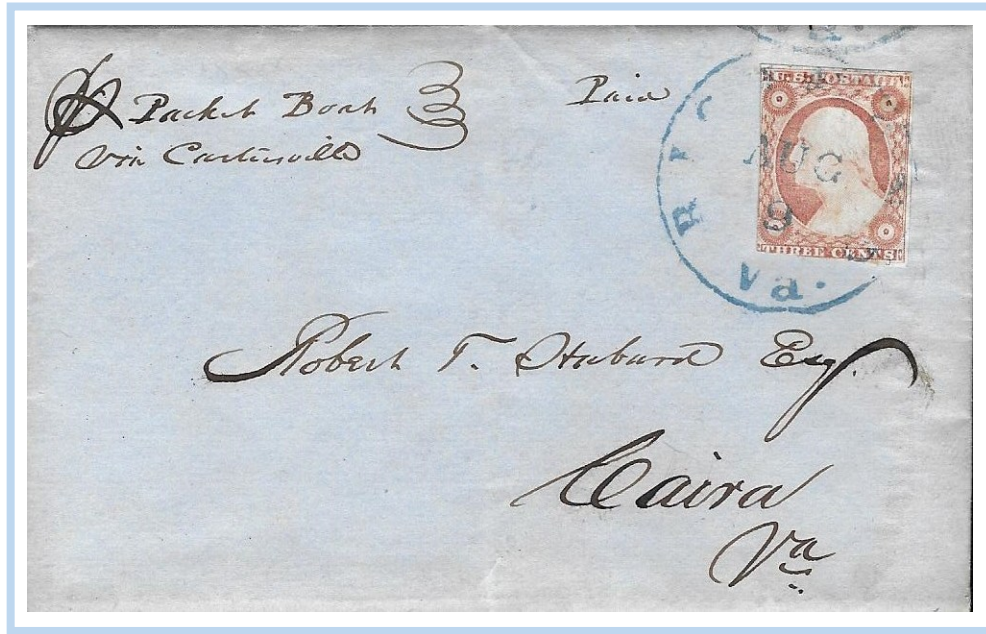 Packet Boat
Via Cartersville
Paid
U.S. POSTAGE
RIC
AUG
9
Va.
THREE CENTS
Robert T. Hubard Esq.
Caira
Va